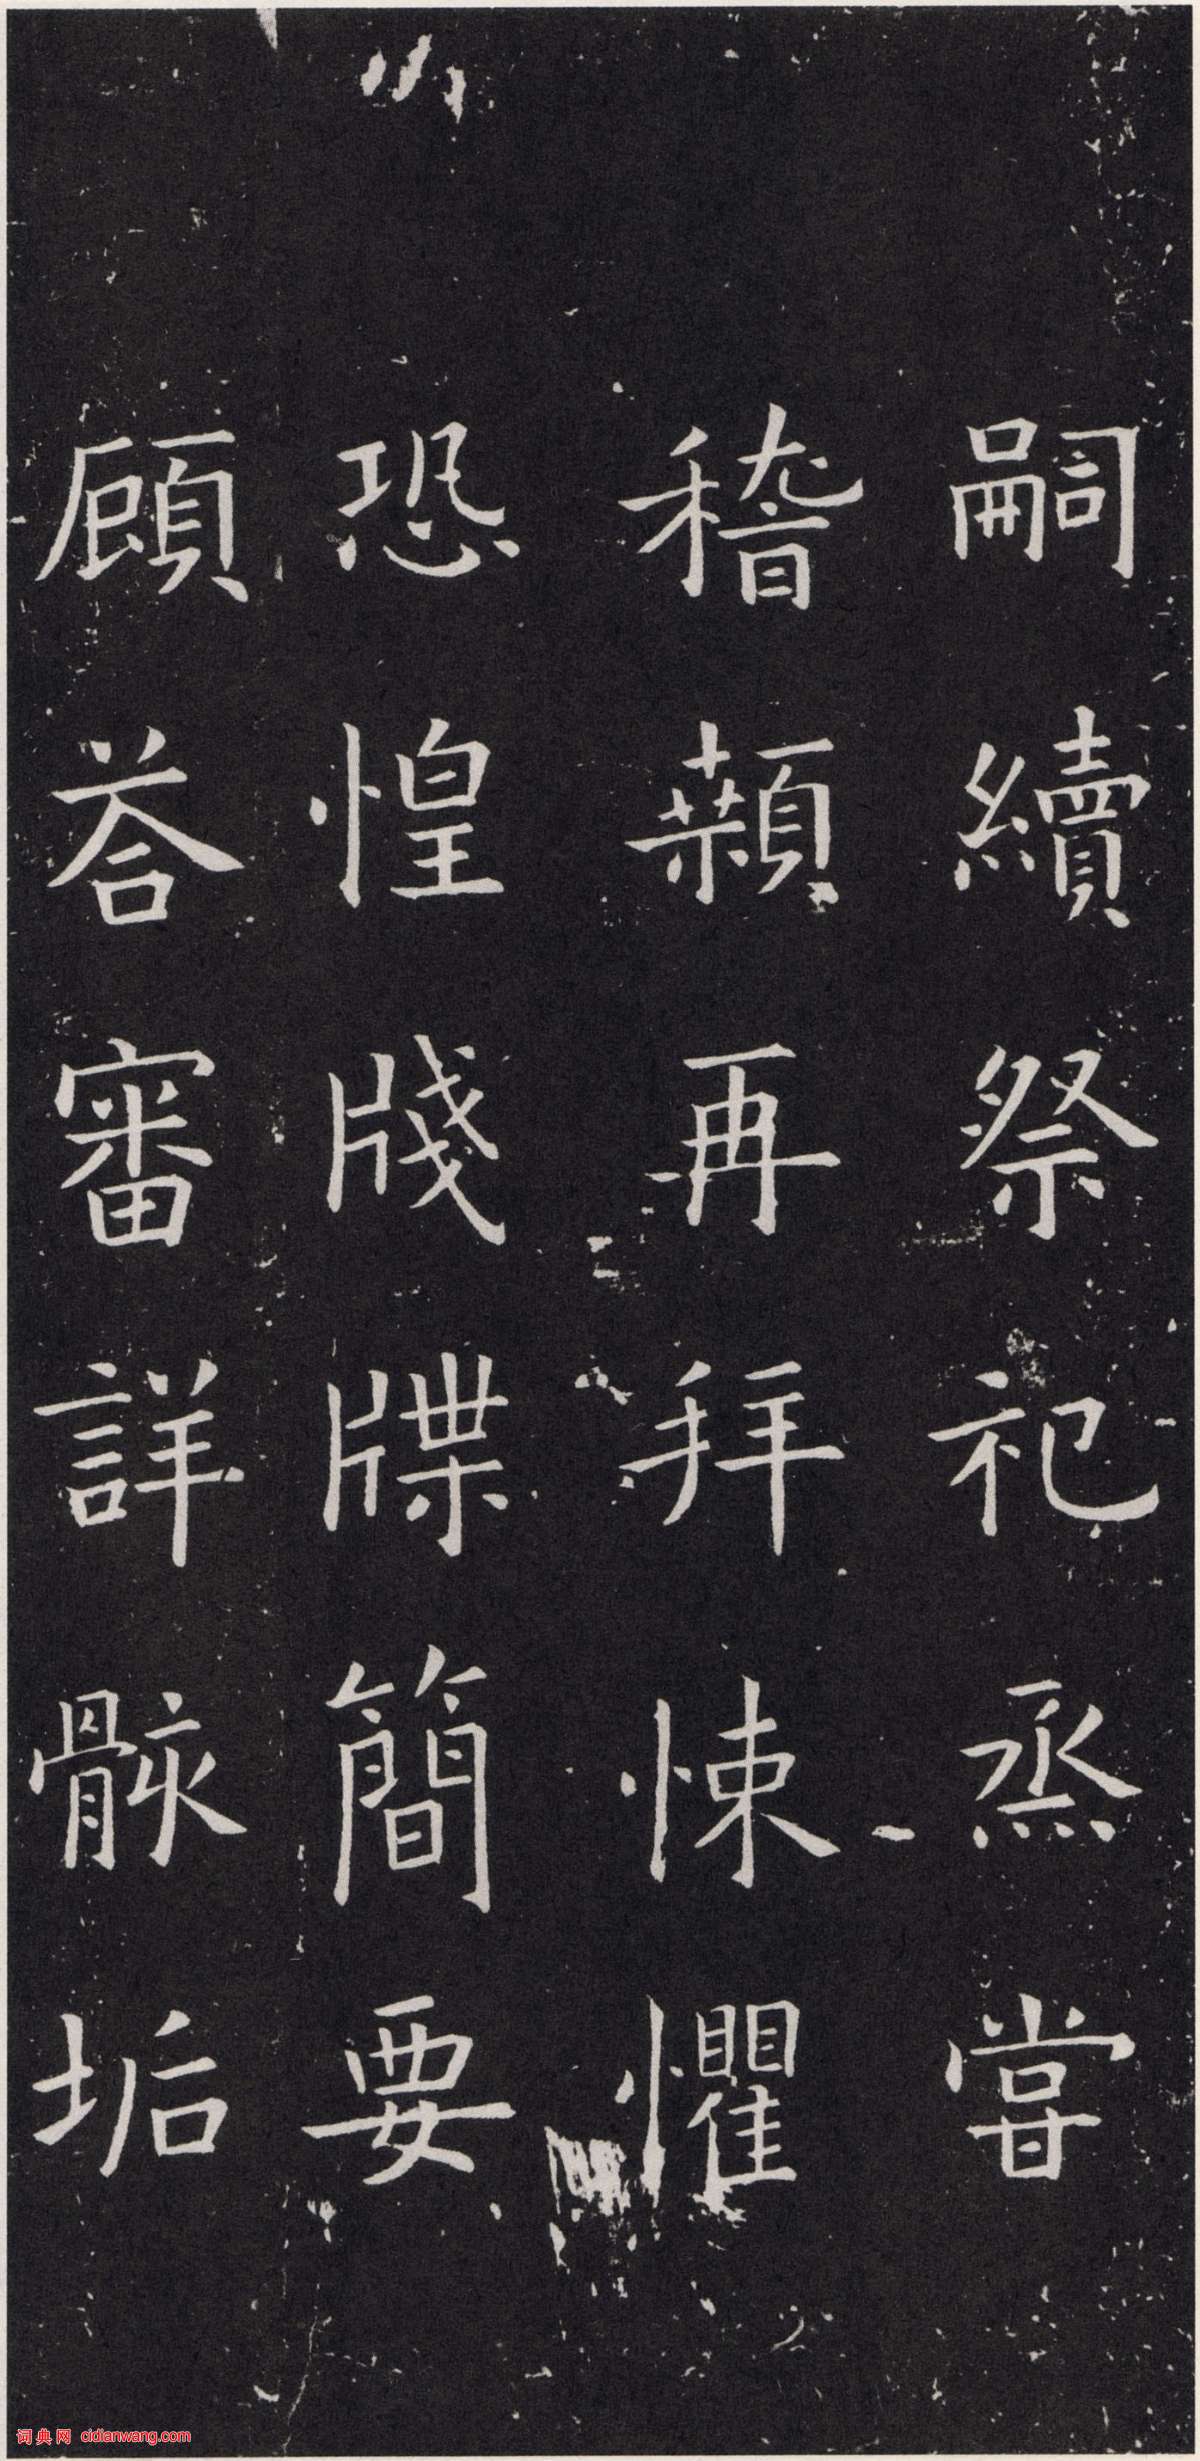 嗣續祭祀烝嘗
稽顙再拜悚懼
恐惶牋牒簡要
顧荅審詳骸垢
词典网 cidianwang.com